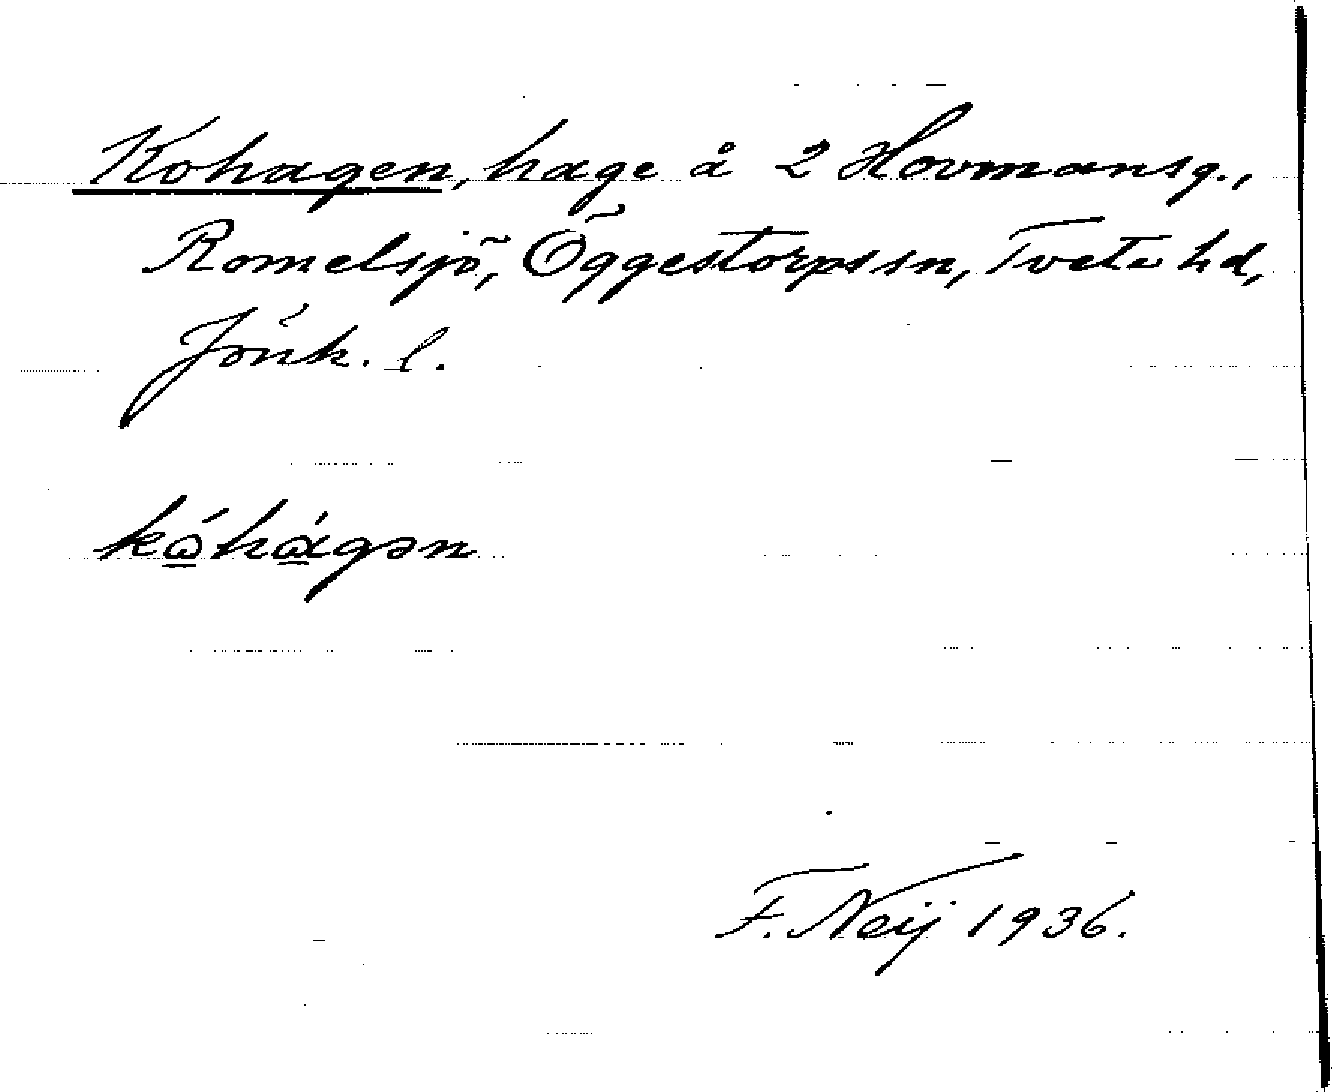 Kohagen, hage å 2 Hovmansg.,
Romelsjö, Öggestorps sn, Tveta hd,
Jönk. l.
kó̲hà̲gən
F. Neij 1936.